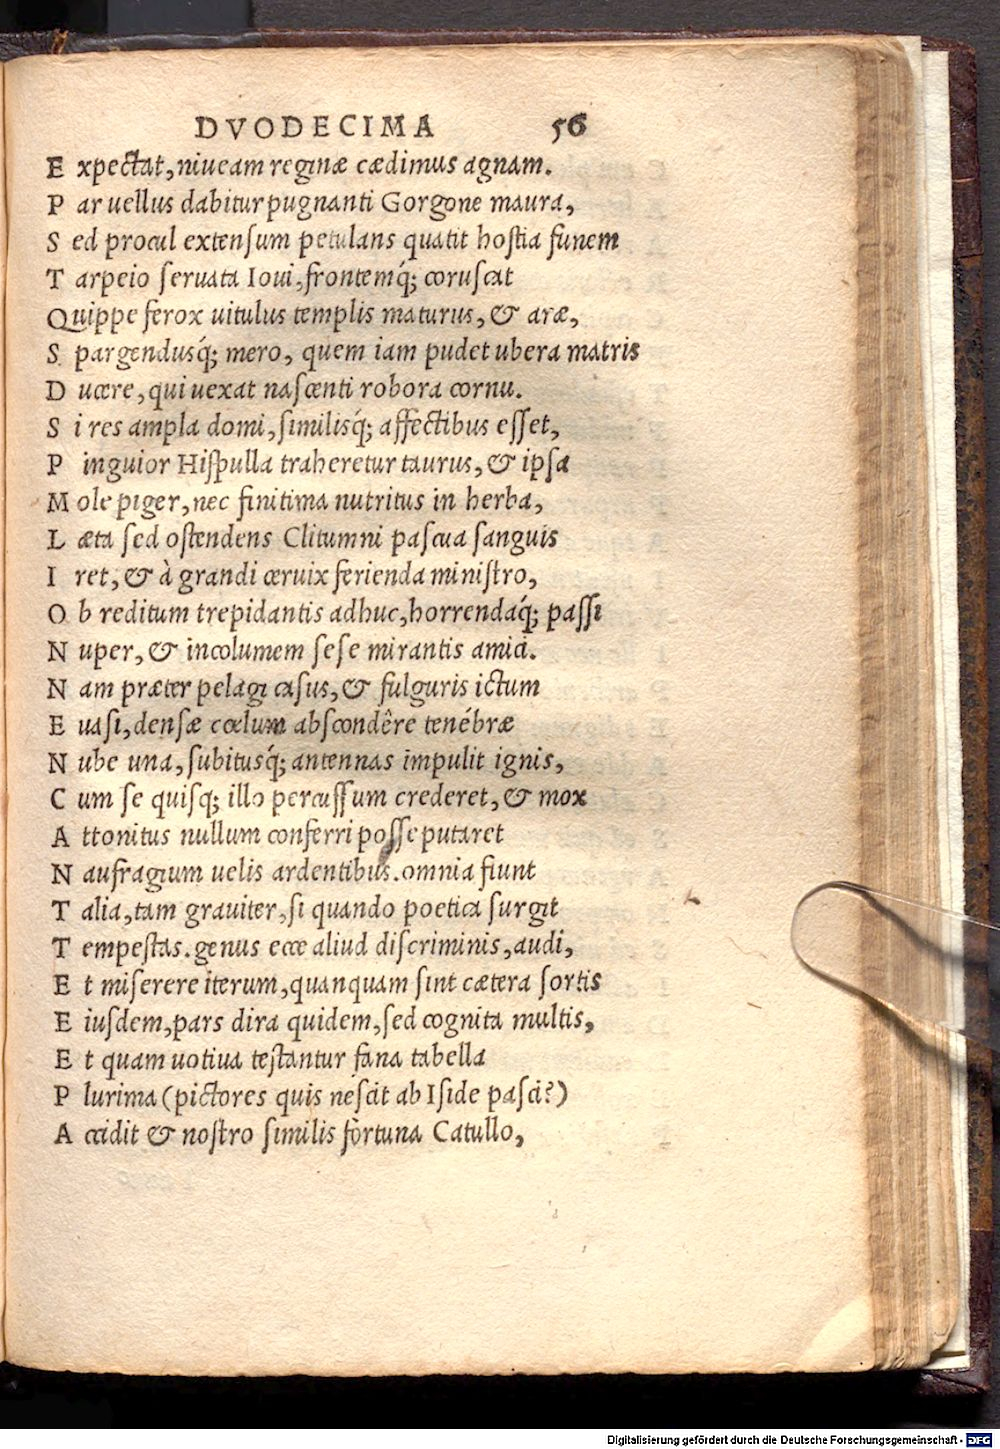 DVODECIMA 56
E xpectat, niueam reginæ cædimus agnam.
P ar uellus dabitur pugnanti Gorgone maura,
S ed procul extensum petulans quatit hostia funem
T arpeio seruata Ioui, frontemq́; coruscat
Quippe ferox uitulus templis maturus, & aræ,
S pargendusq́; mero, quem iam pudet ubera matris
D ucere, qui uexat nascenti robora cornu.
S i res ampla domi, similisq́; affectibus esset,
P inguior Hispulla traheretur taurus, & ipsa
M ole piger, nec finitima nutritus in herba,
L æta sed ostendens Clitumni pascua sanguis
I ret, & à grandi ceruix ferienda ministro,
O b reditum trepidantis adhuc, horrendaq́; passi
N uper, & incolumem sese mirantis amici.
N am præter pelagi casus, & fulguris ictum
E uasi, densæ cœlum abscondêre tenébræ
N ube una, subitusq́; antennas impulit ignis,
C um se quisq; illo percussum crederet, & mox
A ttonitus nullum conferri posse putaret
N aufragium uelis ardentibus. omnia fiunt
T alia, tam grauiter, si quando poetica surgit
T empestas. genus ecce aliud discriminis, audi,
E t miserere iterum, quanquam sint cætera sortis
E iusdem, pars dira quidem, sed cognita multis,
E t quam uotiua testantur fana tabella
P lurima (pictores quis nescit ab Iside pasci?)
A ccidit & nostro similis fortuna Catullo,
Digitalisierung gefördert durch die Deutsche Forschungsgemeinschaft - DFG